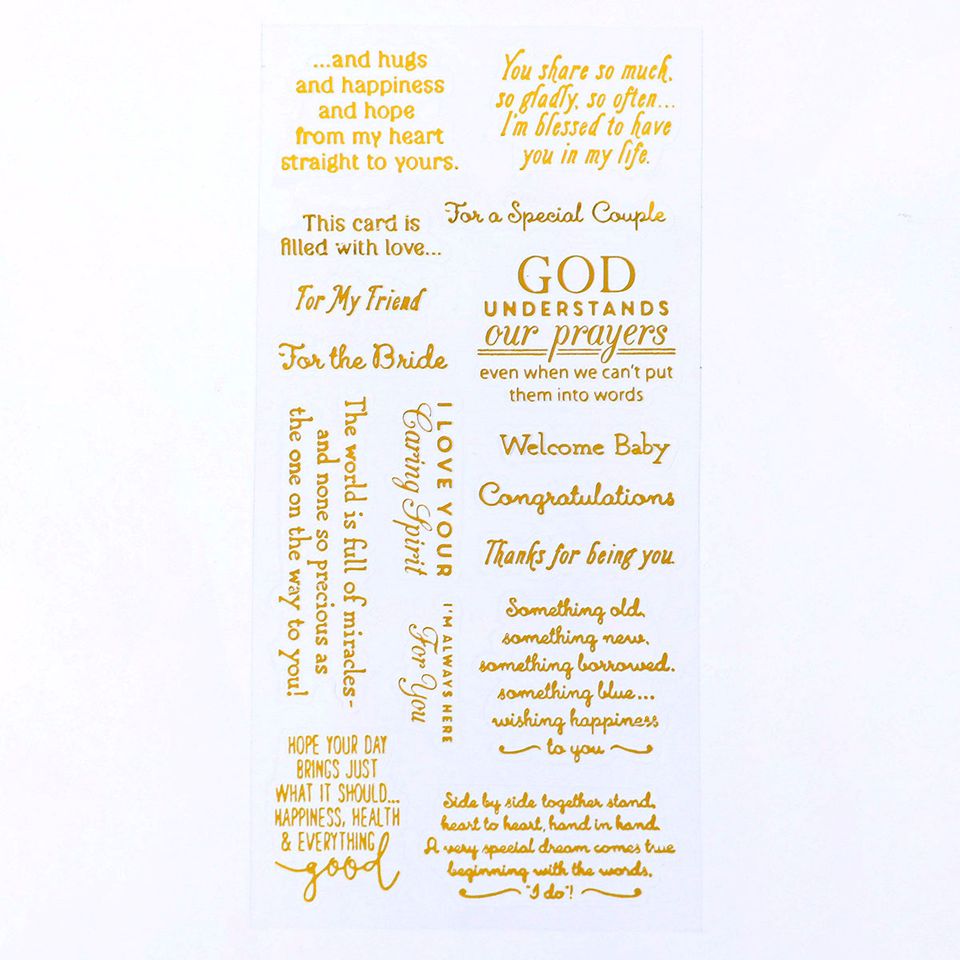 ...and hugs
and happiness
and hope
from my heart
straight to yours.
You share so much,
so gladly, so often...
I'm blessed to have
you in my life.
This card is
filled with love...
For a Special Couple
For My Friend
For the Bride
GOD
UNDERSTANDS
our prayers
even when we can't put
them into words
The world is full of miracles-
and none so precious as
the one on the way to you!
I LOVE YOUR
Caring Spirit
I'M ALWAYS HERE
For You
Welcome Baby
Congratulations
Thanks for being you.
Something old,
something new,
something borrowed,
something blue...
wishing happiness
to you
HOPE YOUR DAY
BRINGS JUST
WHAT IT SHOULD...
HAPPINESS, HEALTH
& EVERYTHING
good
Side by side together stand,
heart to heart, hand in hand.
A very special dream comes true
beginning with the words,
"I do"!